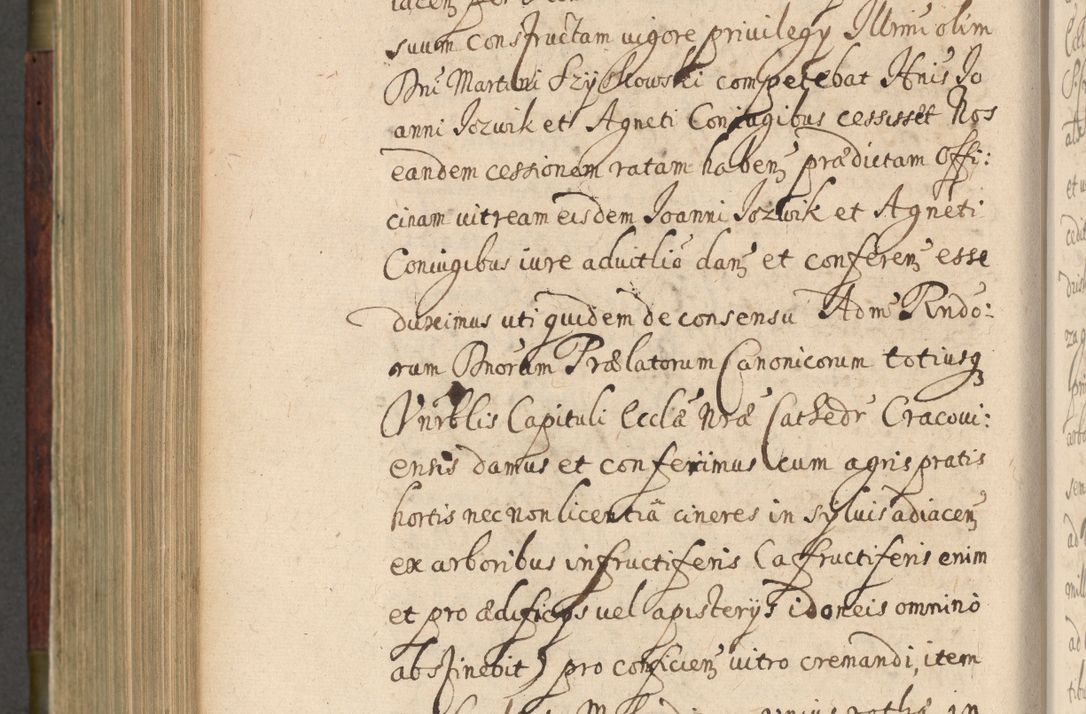 suum constructam vigore privilegÿ Illrmi olim
Dni Martini Szyszkowski competebat Hnis Jo
anni Jozwik et Agneti Coniugibus cessisset Nos
eandem cessionem ratam habenꝫ prædictam Offi:
cinam vitream eisdem Joanni Jozwik et Agneti
Coniugibus iure advitlió danꝫ et conferenꝫ esse
duximus uti quidem de consensu Adme Rndo:
rum Dnorum Prælatorum Canonicorum totiusqꝫ
Vnrblis Capituli Ecclæ Nræ Cathedr Cracovi:
ensis damus et conferimus cum agris pratis
hortis nec non licentiã cineres in sylvis adiacenꝫ
ex arboribus infructiferis (a fructiferis enim
et pro ædificÿs vel apisterÿs idoneis omnino
abstinebit) pro conficienꝫ vitro cremandi, item